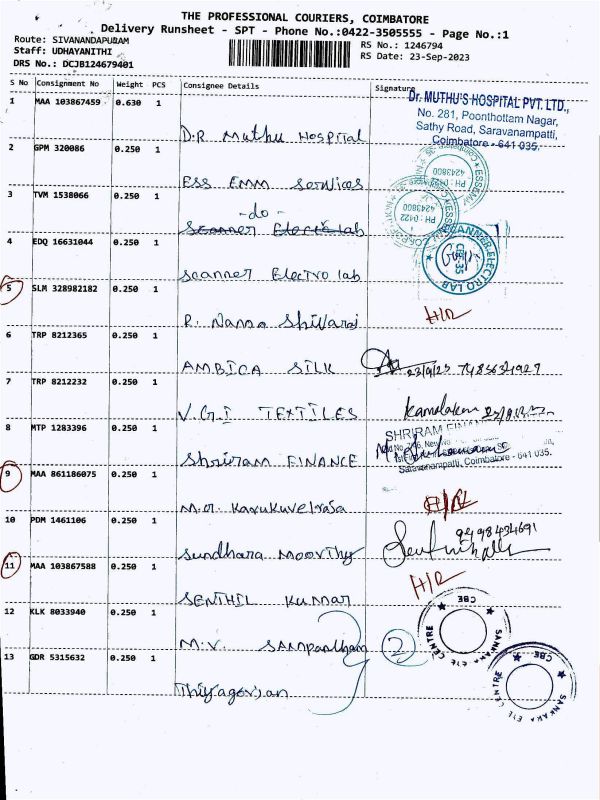 THE PROFESSIONAL COURIERS, COIMBATORE
Delivery Runsheet - SPT - Phone No.:0422-3505555 - Page No.:1
Route: SIVANANDAPURAM
Staff: UDHAYANITHI
DRS No.: DCJB124679401
RS No.: 1246794
RS Date: 23-Sep-2023
S No Consignment No Weight PCS Consignee Details Signature
Dr. MUTHU'S HOSPITAL PVT. LTD.,
No. 281, Poonthottam Nagar,
Sathy Road, Saravanampatti,
Coimbatore - 641 035.
1 MAA 103867459 0.630 1 D.R Muthu HOSPITAL
2 GPM 320086 0.250 1 ESS EMM Services
PH : 0422
4243800
3 TVM 1538066 0.250 1 -do-
Scanner Electro lab
PH : 0422
4243800
4 EDQ 16631044 0.250 1 Scanner Electro lab
SCANNER ELECTRO LAB
CBE-35
5 SLM 328982182 0.250 1 R. Nanna Shivaraj H/R
6 TRP 8212365 0.250 1 AMBICA SILK 23/9/23
7 TRP 8212232 0.250 1 V.G.I TEXTILES
8 MTP 1283396 0.250 1 Shriram FINANCE
SHRIRAM FINANCE
Saravanampatti, Coimbatore - 641 035.
9 MAA 861186075 0.250 1 H/R
10 PDM 1461106 0.250 1 Sundhara Moorthy 9498434691
11 MAA 103867588 0.250 1 SENTHIL Kumar H/R
12 KLK 8033940 0.250 1 M.V. SAMPantham 2
SANKARA EYE CENTRE
CBE
13 GDR 5315632 0.250 1
SANKARA EYE CENTRE
CBE